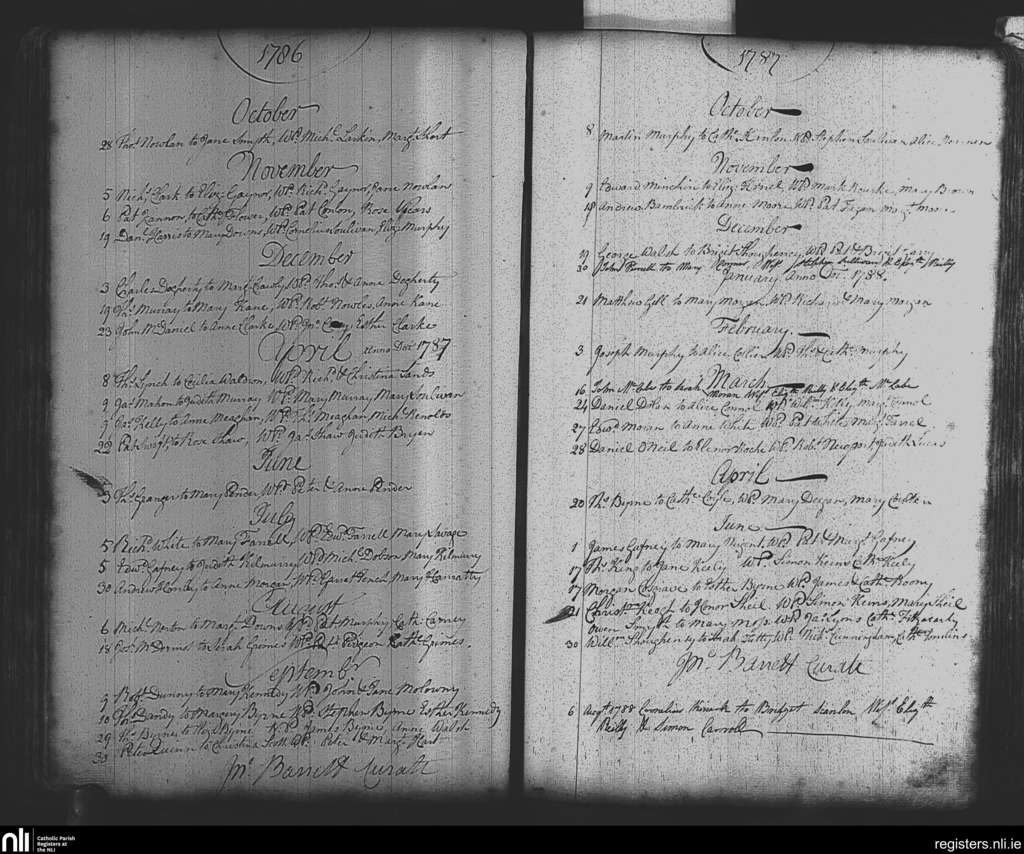 1786
October
28 Thos. Nowlan to Jane Smyth, Wt. Michl. Larkin, Margt. Short
November
5 Richd. Clark to Eliz. Gaynor, Wt. Richd. Gaynor, Jane Nowlan
6 Pat Gannon, to Cathe. Flower, Wt. Pat Conon, Rose
19 Danl. Harris to Mary Downs, Wt. Cornelius Sulivan, Eliz. Murphy
December
3 Charles Docherty to Margt. Wt. Thos. & Anne Docherty
19 Ths. Murray to Mary Kane, Wt. Robt. Nowles, Anne Kane
23 John McDaniel to Anne Clarke, Wt. Jos. Esther Clarke
April Anno Do: 1787
8 Ths. Lynch to Cicilia Waldron, Wt. Richd. & Christina Sands
9 Jas. Mahon to Judith Murray Wt. Mary Murray, Mary
9 Kelly to Anne Meaghan, Wt. Ths. Meaghan, Michl. Renolds
22 Pat Swift, to Rose Shaw, Wt. Jas. Shaw Judith Bryen
June
3 Ths. Granger to Mary Pender Wt. Peter & Anne Pender
July
5 Richd. White to Mary Farrell, Wt. Edwd. Farrell Mary Savage
5 Edwd. Gafney to Judith Kilmurry Wt. Michl. Dobson Mary Kilmurry
30 Andrew to Anne Morgan, Wt. Garret Fench Mary Hanratty
August
6 Michl. Norton to Margt. Downs Wt. Pat Murphy Cath. Carney
18 Jos. McDermot to Sarah Grimes Wt. Pat Pidgeon Cath. Grimes.
September
9 Robt. Dunny to Mary Kennedy Wt. John & Jane Molowny
10 Ths. Dandy to Margery Byrne Wt. Stephen Byrne Esther Kennedy
29 Ths. Byrnes to Rose Byrne Wt. James Byrne, Anne Walsh
30 Peter Quinn to Christina Wt. Peter & Margt. Hart
Jno. Barrett Curate
1787
October
8 Martin Murphy to Cath. Wt. Stephen Sulivan Alice
November
9 Edward Minchin to Eliz. Wt. Mark Rourke, Mary Brown
18 Andrew Bambrick to Anne Moore Wt. Pat Fagan Margt.
December
George Walsh to Briget Shaughnency Wt. Pat & Briget
30 John Powell to Mary Sullivan & Elizth. Reilly
January Anno Do: 1788.
21 Matthew Gill to Mary Morgan, Wt. Richard & Mary Morgan
February.
3 Joseph Murphy to Alice Collins Wt. Ths. & Cath. Murphy
March
16 John McCabe to Sarah Moran Wt. Reilly & Elizth. McCabe
24 Daniel Dolan to Alice Connol Wt. Willm. Margt. Connol
27 Edwd. Moran to Anne White Wt. Pat White, Margt. Farrel
28 Daniel O'Neil to Elenor Roche Wt. Robt. Newport Judith Lucas
April
20 Ths. Byrne to Cathe. Wt. Mary Deegan, Mary
June
1 James Gafney to Mary Nugent, Wt. Pat & Margt. Gafney
17 Ths. King to Jane Keely Wt. Simon Cath. Keely
17 Morgan Cosgrave to Esther Byrne Wt. James & Cath. Roony
21 Christn. Keogh to Honor Sheil Wt. Simon Kerns, Mary Sheil
Owen Smyth to Mary Moss Wt. Jas. Lyons Cath. Fitzgerald
30 Willm. Shaughenty to Sarah Wt. Michl. Cunningham Cath. Tomlins
Jno. Barrett Curate
6 Augt. 1788 Cornelius to Bridget Scanlon Wss. Elizth.
Reilly & Simon Carroll
nli
Catholic Parish
Registers at
the NLI
registers.nli.ie